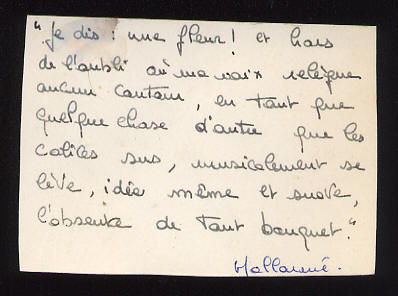 "Je dis : une fleur ! et hors
de l'oubli où ma voix relègue
aucun contour, en tant que
quelque chose d'autre que les
calices sus, musicalement se
lève, idée même et suave,
l'absente de tout bouquet."
Mallarmé.